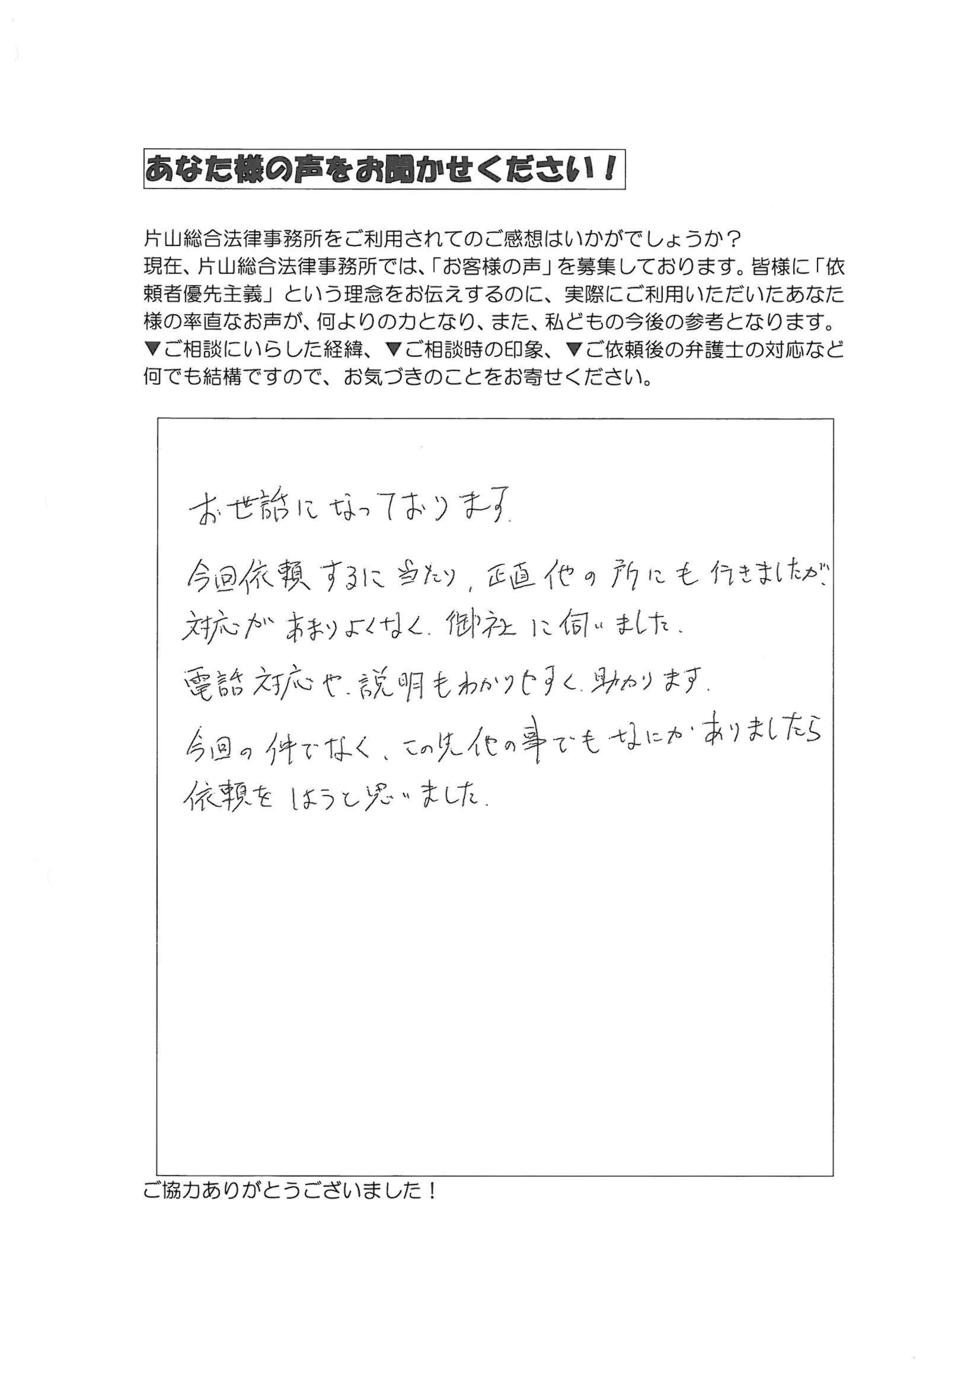 あなた様の声をお聞かせください！
片山総合法律事務所をご利用されてのご感想はいかがでしょうか？
現在、片山総合法律事務所では、「お客様の声」を募集しております。皆様に「依
頼者優先主義」という理念をお伝えするのに、実際にご利用いただいたあなた
様の率直なお声が、何よりの力となり、また、私どもの今後の参考となります。
▼ご相談にいらした経緯、▼ご相談時の印象、▼ご依頼後の弁護士の対応など
何でも結構ですので、お気づきのことをお寄せください。
お世話になっております。
今回依頼するに当たり、正直他の所にも行きましたが、
対応があまりよくなく、御社に伺いました。
電話対応や、説明もわかりやすく、助かります。
今回の件でなく、この先他の事でもなにかありましたら
依頼をしようと思いました。
ご協力ありがとうございました！